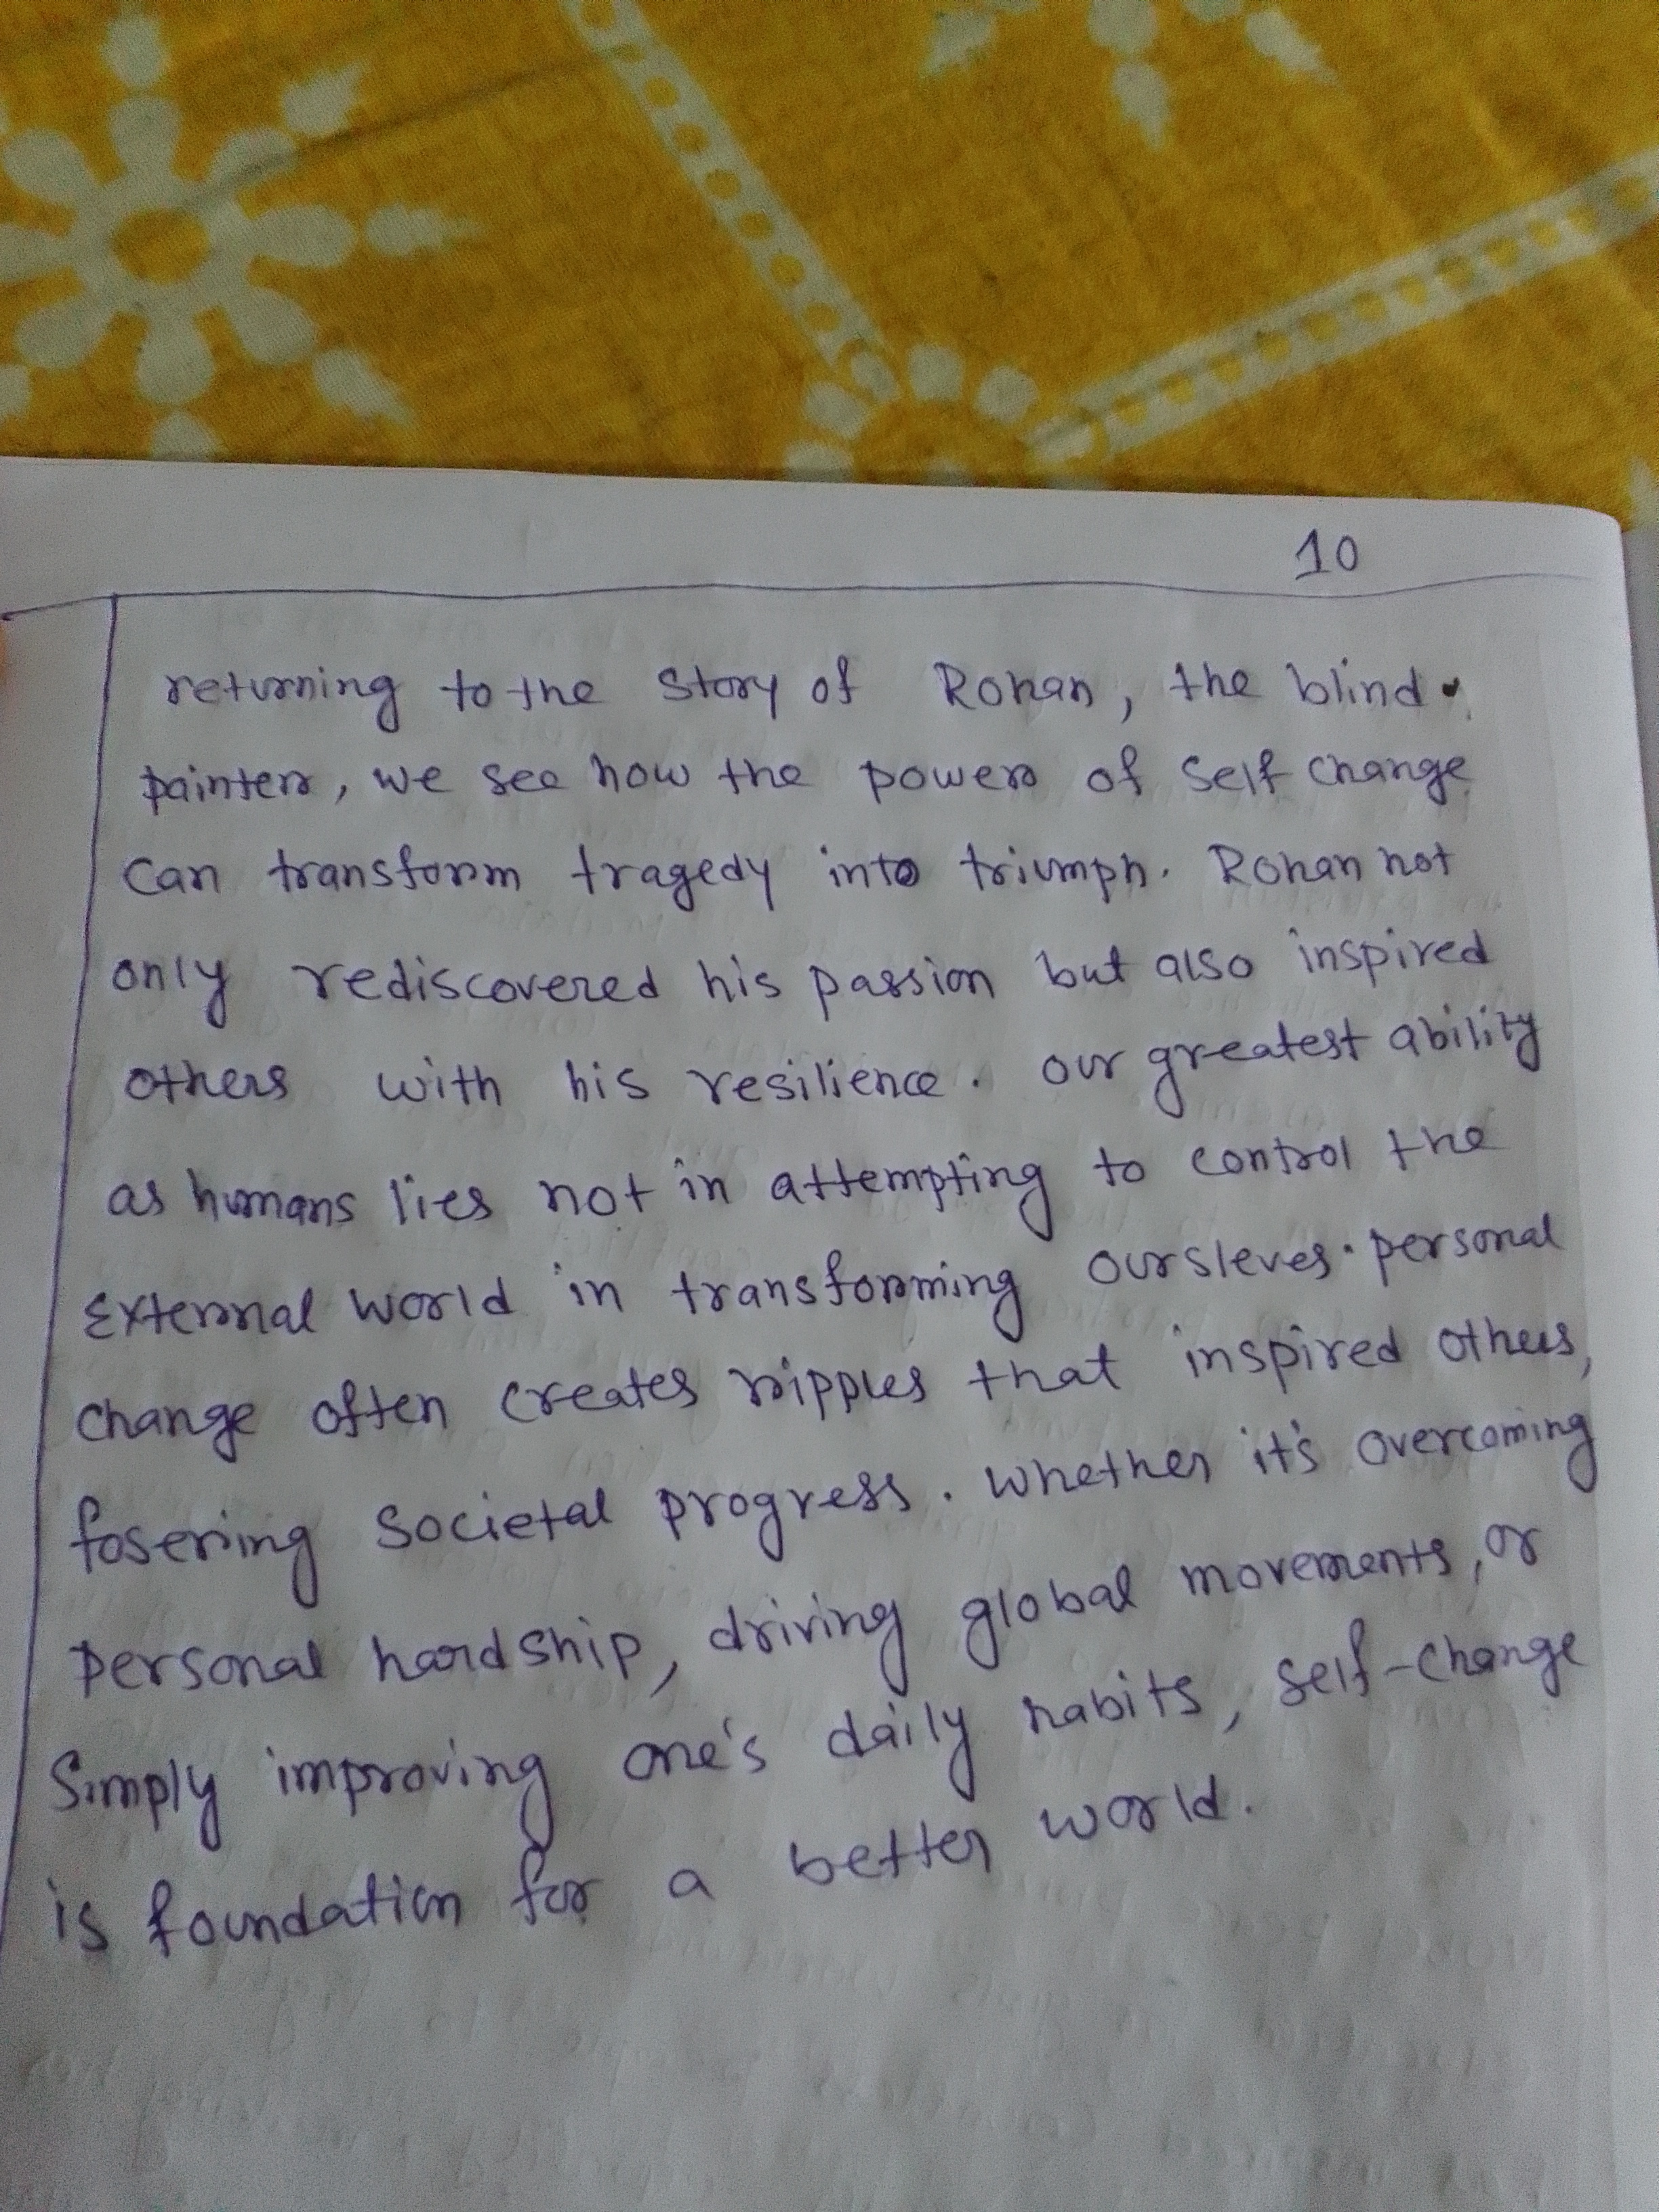 10
returning to the story of Rohan, the blind
painter, we see how the power of self change
can transform tragedy into triumph. Rohan not
only rediscovered his passion but also inspired
others with his resilience. our greatest ability
as humans lies not in attempting to control the
External world in transforming oursleves. personal
change often creates ripples that inspired others,
fosering societal progress. whether it's overcoming
personal hardship, driving global movements, or
simply improving one's daily habits, self-change
is foundation for a better world.